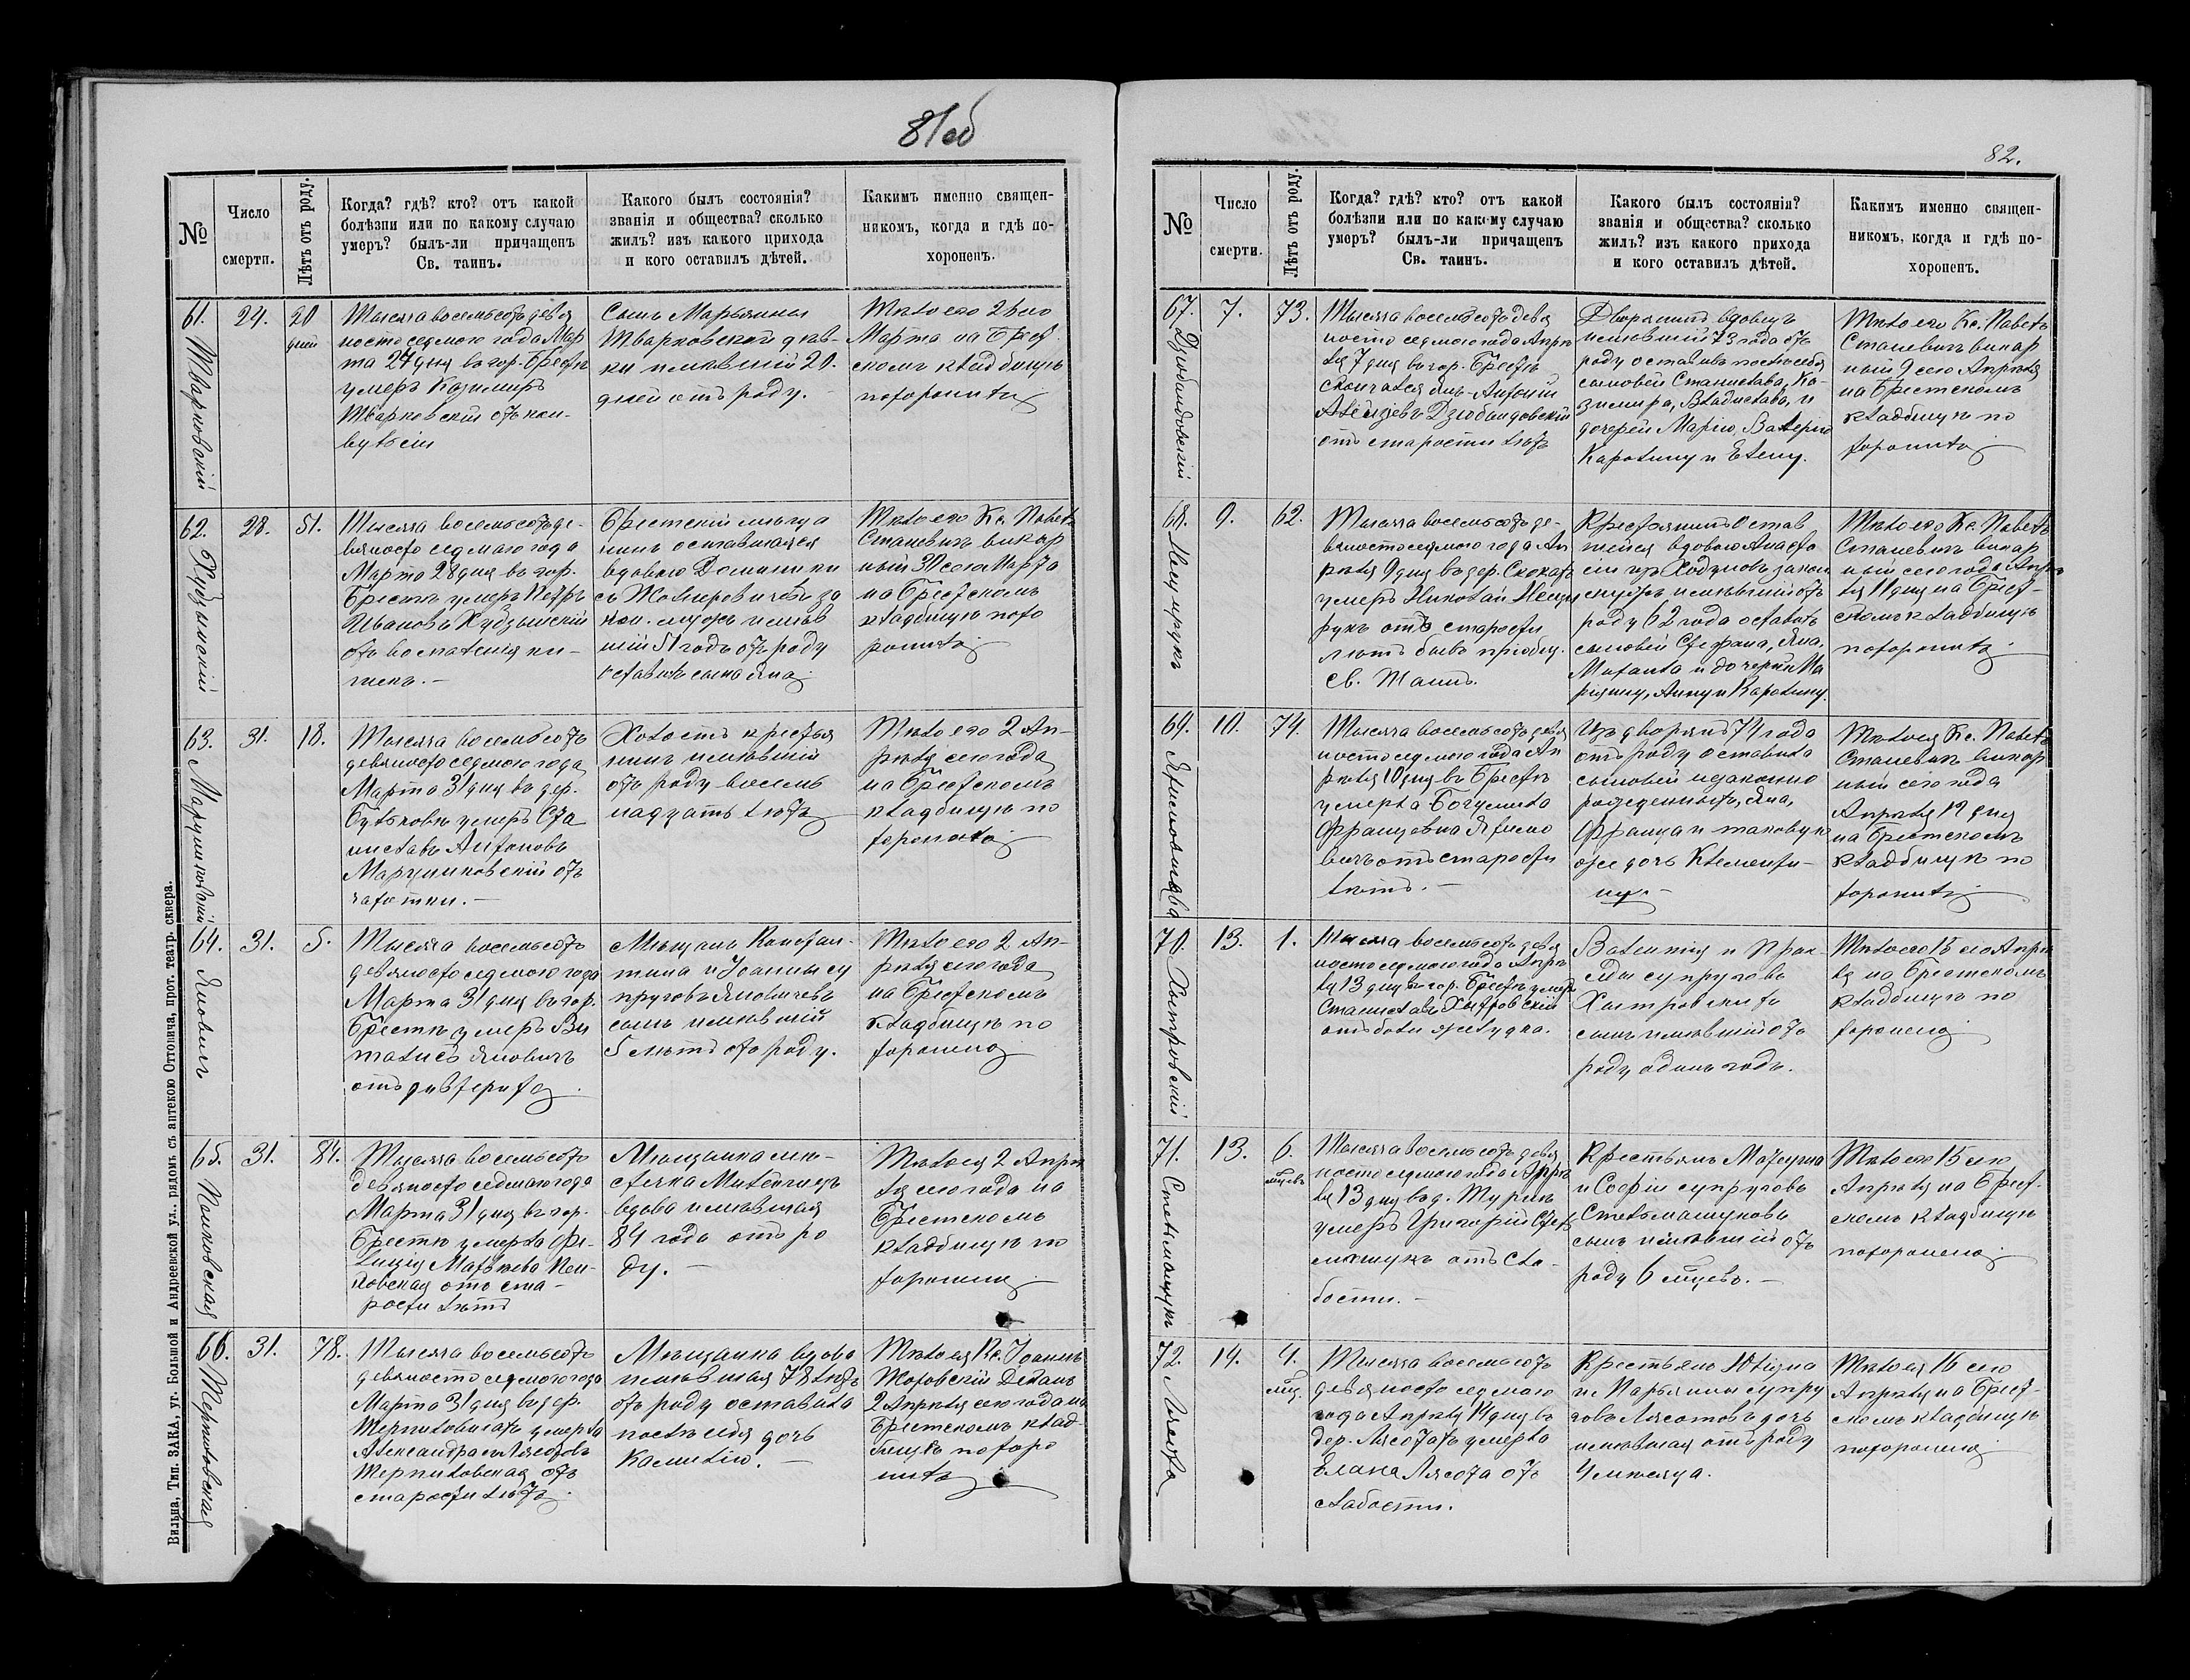 81об
№
Число
смерти.
Лѣтъ отъ роду.
Когда? гдѣ? кто? отъ какой
болѣзни или по какому случаю
умеръ? былъ-ли причащенъ
Св. таинъ.
Какого былъ состоянія?
званія и общества? сколько
жилъ? изъ какого прихода
и кого оставилъ дѣтей.
Какимъ именно священ-
никомъ, когда и гдѣ по-
хороненъ.
61. Тварковскій
24.
20
дней
Тысяча восемьсотъ девя
носто седмого года Мар
та 24 дня въ гор. Брестѣ
умеръ Казимиръ
Тварковскій отъ кон-
вульсіи
Сынъ Марьянны
Тварковской дѣв-
ки имѣвшій 20.
дней отъ роду.
Тѣло его 26 сего
Марта на Брест
скомъ кладбищѣ
похоронито
62. Худзынскій
28.
51.
Тысяча восемьсотъ де-
вяносто седмого года
Марта 28 дня въ гор.
Брестѣ умеръ Петръ
Ивановъ Худзынскій
отъ воспаленія ки-
шекъ. —
Брестскій мѣща
нинъ оставшаяся
вдовою Доминики
съ Жолнеровичовъ за
кон. мужъ имѣв
шій 51 годъ отъ роду
оставилъ сына Яна
Тѣло его Кс. Павелъ
Станевичъ викар
ный 30 сего Марта
на Брестскомъ
кладбищѣ похо
ронилъ
63. Марушковскій
31.
18.
Тысяча восемьсотъ
девяносто седмого года
Марта 31 дня въ дер.
Бульковѣ умеръ Ста
ниславъ Антоновъ
Марушковскій отъ
чахотки. —
Холостъ крестья
нинъ имѣвшій
отъ роду восем
надцать лѣтъ
Тѣло его 2 Ап-
рѣля сего года
на Брестскомъ
кладбищѣ по
хоронито
64. Яновичъ
31.
5.
Тысяча восемьсотъ
девяносто седмого года
Марта 31 дня въ гор.
Брестѣ умеръ Ви
талисъ Яновичъ
отъ дифтерита
Мѣщанъ Констан-
тина и Іоанны су
пруговъ Яновичевъ
сынъ имѣвшій
5 лѣтъ отъ роду.
Тѣло его 2 Ап-
рѣля сего года
на Брестскомъ
кладбищѣ по
хоронено
65.
31.
84.
Тысяча восемьсотъ
девяносто седмого года
Марта 31 дня въ гор.
Брестѣ умерла Фе-
лиція
отъ ста-
рости лѣтъ
Мѣщанка мѣ-
стечка
вдова имѣвшая
84 года отъ ро
ду. —
Тѣло ея 2 Апрѣ
ля сего года на
Брестскомъ
кладбищѣ по
хоронено
66.
31.
78.
Тысяча восемьсотъ
девяносто седмого года
Марта 31 дня въ дер.
умерла
Александра
отъ
старости лѣтъ
Мѣщанка вдова
имѣвшая 78 лѣтъ
отъ роду оставила
послѣ себя дочь
Камилію. —
Тѣло ея Кс. Іоаннъ
Деканъ
2 Апрѣля сего года на
Брестскомъ клад-
бищѣ похоро
нилъ
Вильна, Тип. ЗАКА, уг. Большой и Андреевской ул., рядомъ съ аптекою Оттовича, прот. театр. сквера.
82.
№
Число
смерти.
Лѣтъ отъ роду.
Когда? гдѣ? кто? отъ какой
болѣзни или по какому случаю
умеръ? былъ-ли причащенъ
Св. таинъ.
Какого былъ состоянія?
званія и общества? сколько
жилъ? изъ какого прихода
и кого оставилъ дѣтей.
Какимъ именно священ-
никомъ, когда и гдѣ по-
хороненъ.
67. Дзюбандовскій
7.
73.
Тысяча восемьсотъ девя
носто седмого года Апрѣ
ля 7 дня въ гор. Брестѣ
скончался Антоній
Дзюбандовскій
отъ старости лѣтъ
Дворянинъ вдовецъ
имѣвшій 73 года отъ
роду оставивъ послѣ себя
сыновей Станислава, Ка-
зимира, Владислава, и
дочерей Марію, Валерію
Каролину и Елену.
Тѣло его Кс. Павелъ
Станевичъ викар
ный 9 сего Апрѣля
на Брестскомъ
кладбищѣ по
хоронилъ
68. Мещурукъ
9.
62.
Тысяча восемьсотъ де-
вяносто седмого года Ап
рѣля 9 дня въ дер. Скокахъ
умеръ Николай Мещу
рукъ отъ старости
лѣтъ бывъ пріобщ.
Св. Таинъ.
Крестьянинъ остав
шейся вдовою Анаста
сіи изъ Ходуновъ закон
мужъ имѣвшій отъ
роду 62 года оставилъ
сыновей Стефана, Яна,
Михаила и дочерей Ма
ріанну, Анну и Каролину.
Тѣло его Кс. Павелъ
Станевичъ викар
ный сего года Апрѣ
ля 11 дня на Брест-
скомъ кладбищѣ
похоронилъ
69.
10.
74.
Тысяча восемьсотъ девя
носто седмого года Ап
рѣля 10 дня въ Брестѣ
умерла Богумила
Францевна
отъ старости
лѣтъ. —
Изъ дворянъ 74 года
отъ роду оставила
сыновей незаконно
рожденныхъ, Яна,
Франца и таковую
же дочь Клементи-
ну. —
Тѣло ея Кс. Павелъ
Станевичъ викар
ный сего года
Апрѣля 12 дня
на Брестскомъ
кладбищѣ по
хоронилъ
70. Хытровскій
13.
1.
Тысяча восемьсотъ девя
носто седмого года Апрѣ
ля 13 дня въ гор. Брестѣ умеръ
Станиславъ Хытровскій
отъ боли желудка.
Валентія и Прак-
седы супруговъ
Хытровскихъ
сынъ имѣвшій отъ
роду одинъ годъ.
Тѣло его 15 сего Апрѣ
ля на Брестскомъ
кладбищѣ по
хоронено
71. Стельмашукъ
13.
6.
мѣсяцевъ
Тысяча восемьсотъ девя
носто седмого года Апрѣ
ля 13 дня въ д. Турнѣ
умеръ Григорій Стель
машукъ отъ сла-
бости. —
Крестьянъ
и Софіи супруговъ
Стельмашуковъ
сынъ имѣвшій отъ
роду 6 мѣсяцевъ. —
Тѣло его 15 сего
Апрѣля на Брест-
скомъ кладбищѣ
похоронено
72. Лясота
14.
4.
мѣс.
Тысяча восемьсотъ
девяносто седмого
года Апрѣля 14 дня въ
дер. Лясотахъ умерла
Елена Лясота отъ
слабости.
Крестьянъ Юліяна
и Марьянны супру
говъ Лясотовъ дочь
имѣвшая отъ роду
4 мѣсяца.
Тѣло ея 16 сего
Апрѣля на Брест-
скомъ кладбищѣ
похоронено